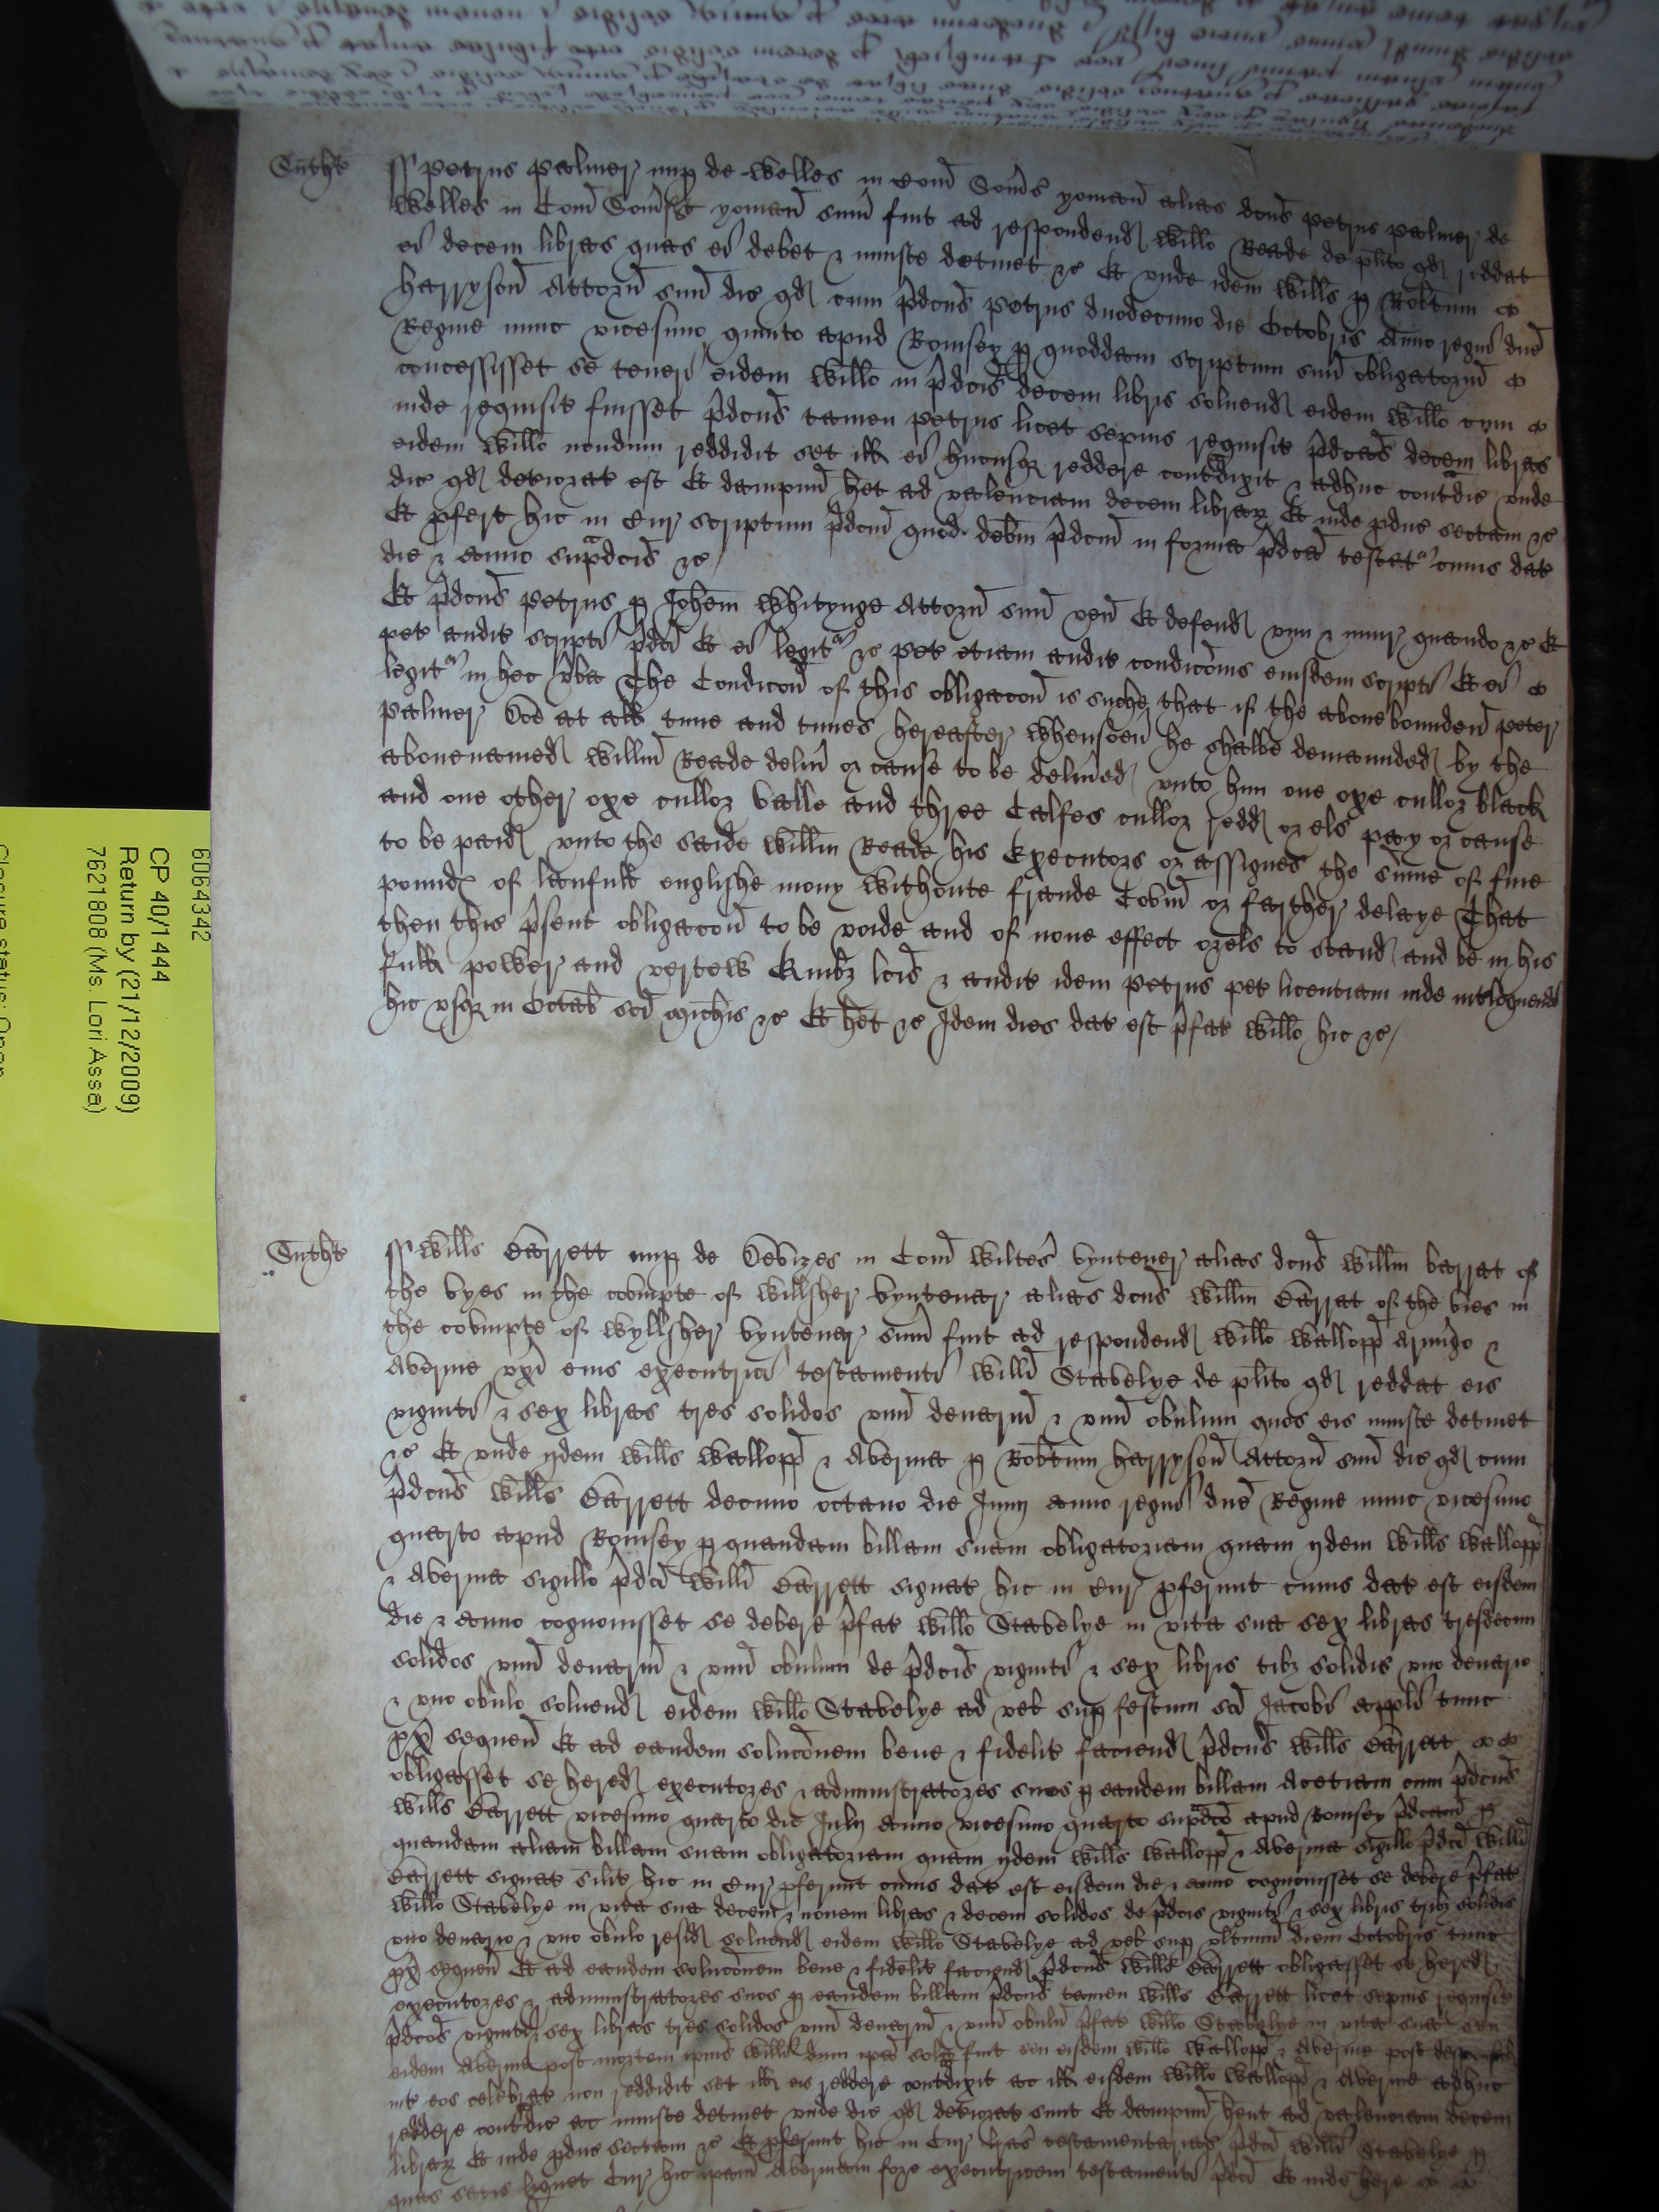 Sutht ss Petrus Palmer nup de Welles in Com Soms yoman alias dcus Petrus Palmer de
Welles in Com Somst yoman sum fuit ad respondend Willo Reade de plito qd reddat
ei decem libras quas ei debet & iniuste detinet &c Et unde idem Wills p Robtum
Harryson Attorn suu dic qd cum pdcus Petrus duodecimo die Octobris Anno regni dne
Regine nunc vicesimo quinto apud Romsey p quoddam scriptum suu obligatoriu
concessisset se teneri eidem Willo in pdcis decem libris solvend eidem Willo cum
inde requisit fuisset pdcus tamen Petrus licet sepius requisit pdcas decem libras
eidem Willo nondum reddidit set ill ei hucusq reddere contradixit & adhuc contradic unde
dic qd deteriorat est Et dampnu het ad valenciam decem librar Et inde pduc sectam &c
Et pfert hic in Cur scriptum pdcm quod debm pdcm in forma pdca testat cuius dat
die & anno supradcis &c
Et pdcus Petrus p Johem Whitynge Attorn suu ven Et defend vim & iniur quando &c Et
pet audit scripti pdci Et ei legit &c pet etiam audit condicionis eiusdem scripti Et ei
legit in hec vba The Condicon of this obligacon is suche that if the abovebounden Peter
Palmer Doe at all time and times hereafter whensoev he shalbe demaunded by the
abovenamed Willm Reade deliv or cause to be delived unto him one oxe cullor black
and one other oxe cullor balle and three Calfes cullor redd or els pay or cause
to be paid unto the saide Willm Reade his Executors or assignes the sume of five
pound of lawfull englishe mony withoute fraude Covin or farther delaye That
then this psent obligacon to be voide and of none effect orels to stand and be in his
full power and vertew Quibz lcis & audit idem Petrus pet licentiam inde intloquend
hic usq in Octab sci Michis &c Et het &c Idem dies dat est pfat Willo hic &c
Sutht ss Wills Barrett nup de Devizes in Com Wiltes vyntener alias dcus Willm barrat of
the vyes in the cowmpte of Willsher vyntenar alias dcus Willm Barrat of the vies in
the cowmpte of Wyllsher vyntenar sum fuit ad respondend Willo Wallopp armigo &
Averine uxi eius executrici testamenti Willi Stavelye de plito qd reddat eis
viginti & sex libras tres solidos unu denariu & unu obulum quos eis iniuste detinet
&c Et unde ydem Wills Wallopp & Averina p Robtum Harryson Attorn suu dic qd cum
pdcus Wills Barrett decimo octavo die Junij anno regni dne Regine nunc vicesimo
quarto apud Romsey p quandam billam suam obligatoriam quam ydem Wills Wallopp
& Averina sigillo pdci Willi Barrett signat hic in Cur pferunt cuius dat est eisdem
die & anno cognovisset se debere pfat Willo Stavelye in vita sua sex libras tresdecim
solidos unu denariu & unu obulum de pdcis viginti & sex libris tribz solidis uno denario
& uno obulo solvend eidem Willo Stavelye ad vel sup festum sci Jacobi appli tunc
px sequen Et ad eandem solucionem bene & fidelit faciend pdcus Wills Barrett
obligasset se hered executores & administratores suos p eandem billam Acetiam cum pdcus
Wills Barrett vicesimo quarto die Julij anno vicesimo quarto supradco apud Romsey pdcam p
quandam aliam billam suam obligatoriam quam ydem Wills Wallopp & Averina sigillo pdci Willi
Barrett signat silit hic in Cur pferunt cuius dat est eisdem die & anno cognovisset se debere pfat
Willo Stavelye in vita sua decem & novem libras & decem solidos de pdcis viginti & sex libris tribz solidis
uno denario & uno obulo resid solvend eidem Willo Stavelye ad vel sup ultimum diem Octobris tunc
px sequen Et ad eandem solucionem bene & fidelit faciend pdcus Wills Barrett obligasset se hered
executores & administratores suos p eandem billam pdcus tamen Wills Barrett licet sepius requisit
pdcos viginti & sex libras tres solidos unu denariu & unu obulu pfat Willo Stavelye in vita sua seu
eidem Averine post mortem ipius Willi dum ipa sola fuit seu eisdem Willo Wallopp & Averine post
int eos celebrat non reddidit set ill eis reddere contradixit ac ill eisdem Willo Wallopp & Averine adhuc
reddere contradic ac iniuste detinet unde dic qd deteriorat sunt Et dampnu hent ad valenciam decem
librar Et inde pduc sectam &c Et pferunt hic in Cur lras testamentarias pdci Willi Stavelye p
quas satis liquet Cur hic ipam Averinam fore executricem testamenti pdci Et inde here
6064342
CP 40/1444
Return by (21/12/2009)
7621808 (Ms. Lori Assa)
Closure status: Open